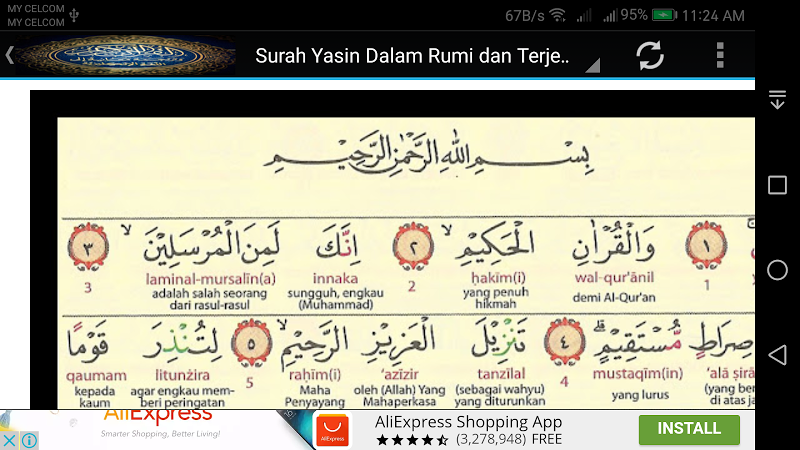 MY CELCOM
MY CELCOM
67B/s 95% 11:24 AM
Surah Yasin Dalam Rumi dan Terje..
بِسْمِ اللّٰهِ الرَّحْمٰنِ الرَّحِيْمِ
١ وَالْقُرْاٰنِ الْحَكِيْمِۙ ٢ اِنَّكَ لَمِنَ الْمُرْسَلِيْنَۙ ٣
1 wal-qur'ānil ḥakīm(i) 2 innaka laminal-mursalīn(a) 3
demi Al-Qur'an yang penuh hikmah sungguh, engkau (Muhammad) adalah salah seorang dari rasul-rasul
صِرَاطٍ مُّسْتَقِيْمٍۗ ٤ تَنْزِيْلَ الْعَزِيْزِ الرَّحِيْمِۙ ٥ لِتُنْذِرَ قَوْمًا
'alā ṣirā mustaqīm(in) 4 tanzīlal 'azīzir raḥīm(i) 5 litunżira qaumam
(yang ber di atas ja yang lurus (sebagai wahyu) yang diturunkan oleh (Allah) Yang Mahaperkasa Maha Penyayang agar engkau mem-beri peringatan kepada kaum
AliExpress
Smarter Shopping, Better Living!
AliExpress
AliExpress Shopping App
(3,278,948) FREE
INSTALL